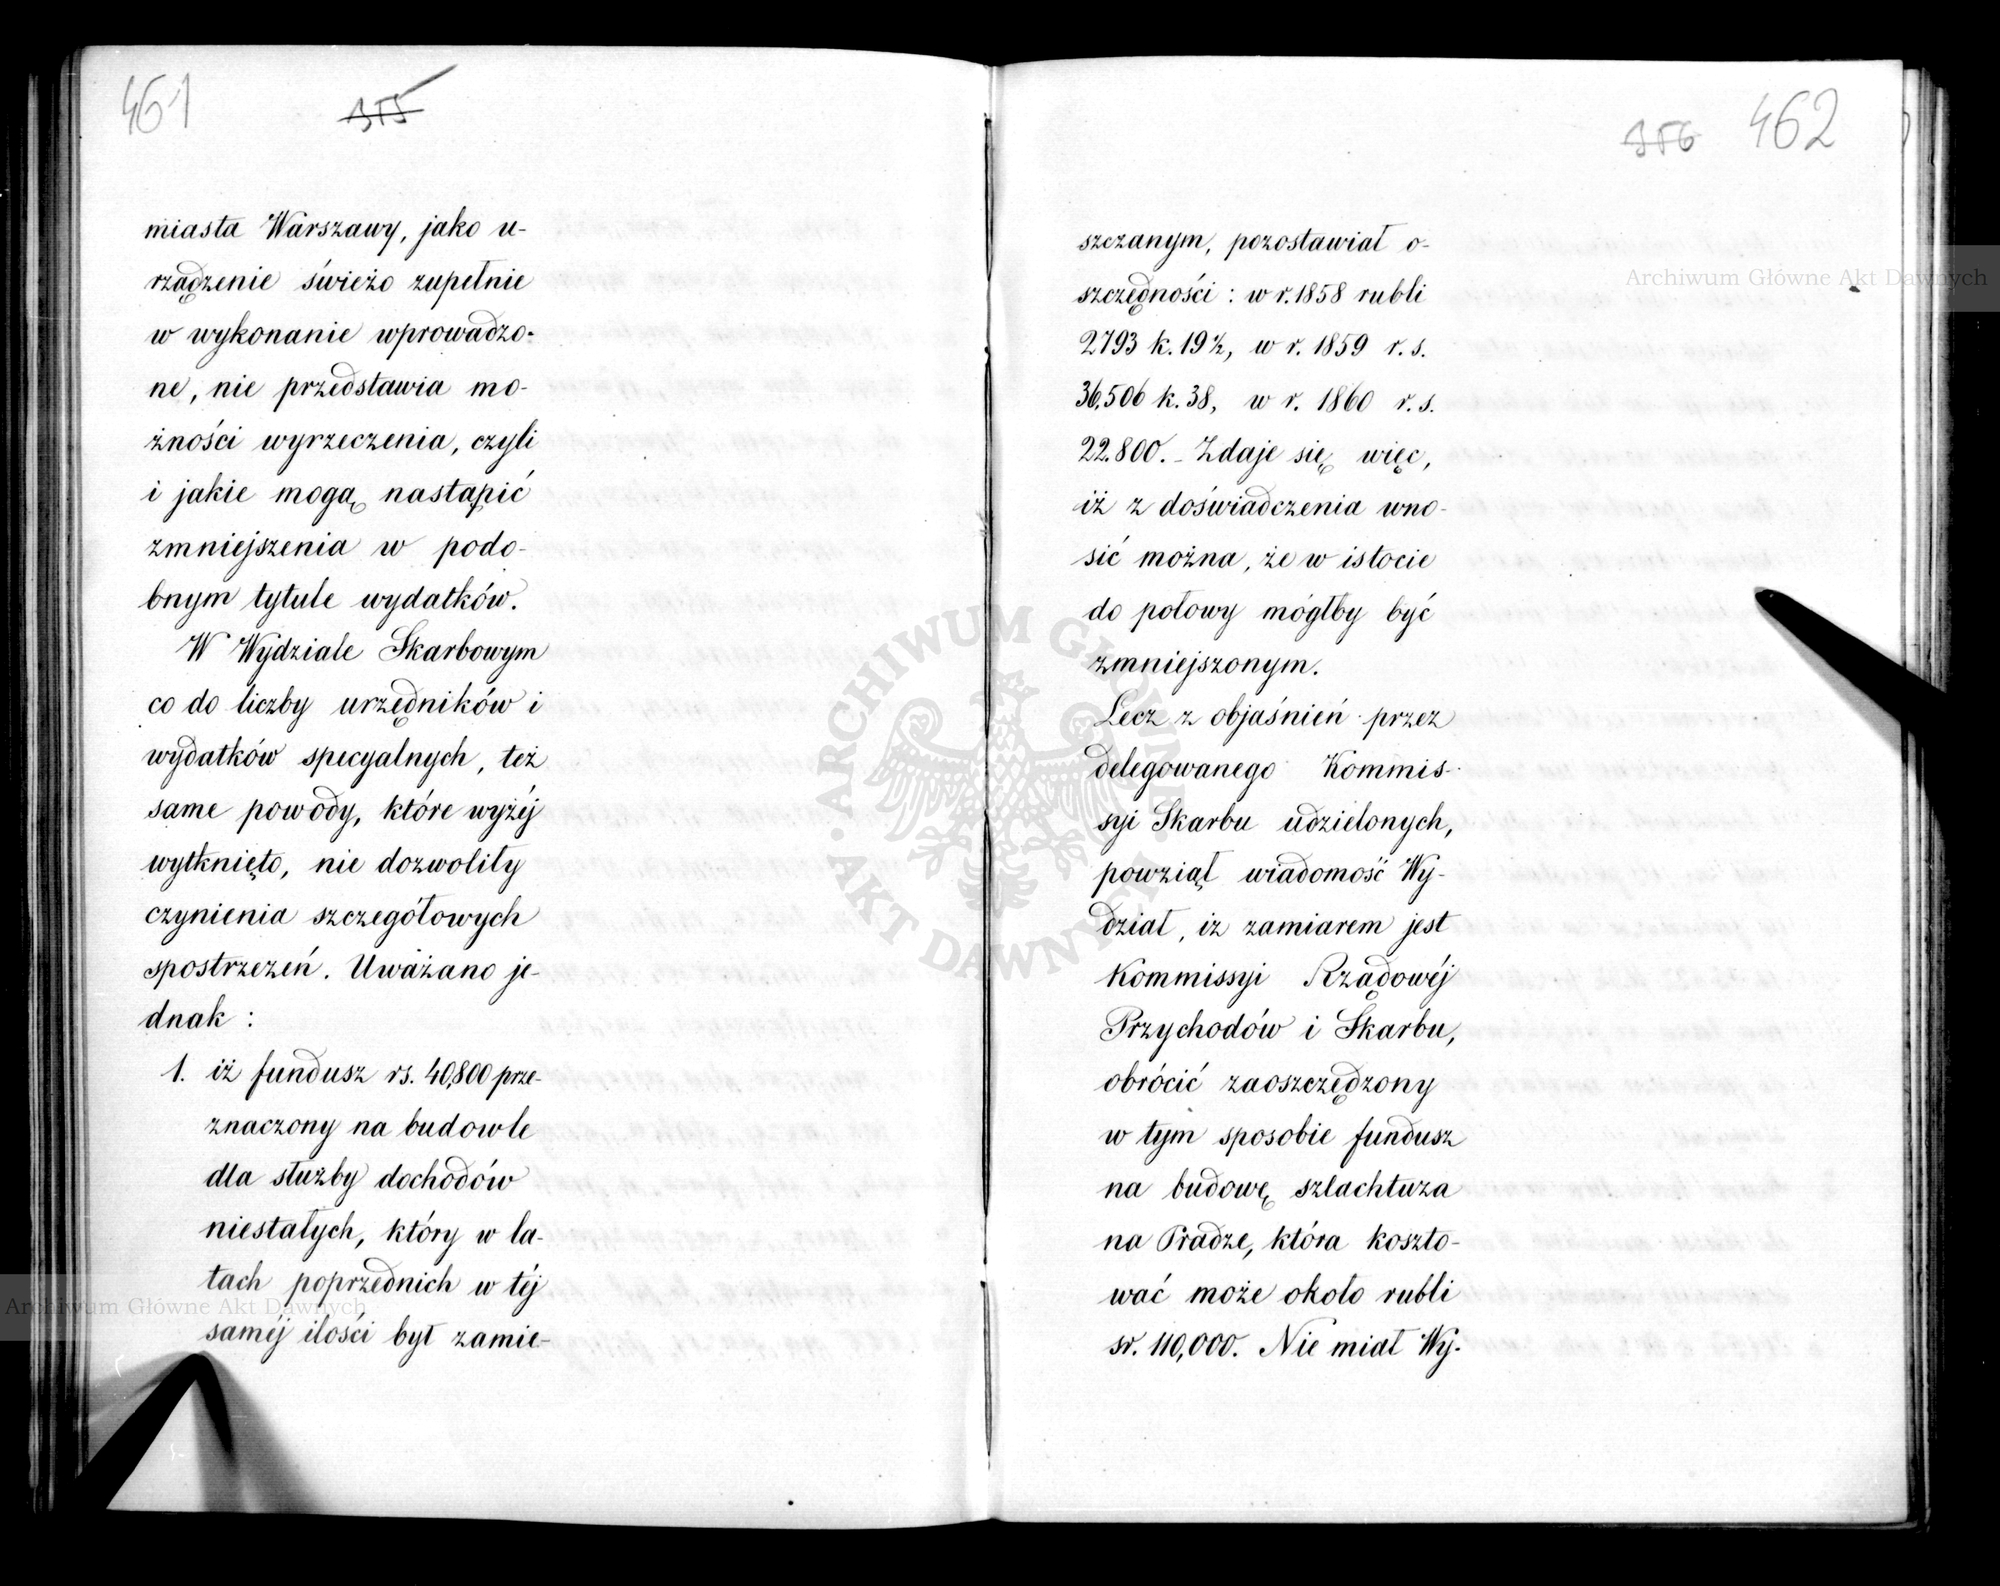 461
miasta Warszawy, jako u-
rządzenie świeżo zupełnie
w wykonanie wprowadzo-
ne, nie przedstawia mo-
żności wyrzeczenia, czyli
i jakie mogą nastąpić
zmniejszenia w podo-
bnym tytule wydatków.
W Wydziale Skarbowym
co do liczby urzędników i
wydatków specyalnych, też
same powody, które wyżéj
wytknięto, nie dozwoliły
czynienia szczegółowych
spostrzeżeń. Uważano je-
dnak :
1. iż fundusz rs. 40,800 prze-
znaczony na budowle
dla służby dochodów
niestałych, który w la-
tach poprzednich w téj
saméj ilości był zamie-
Archiwum Główne Akt Dawnych
462
szczanym, pozostawiał o-
szczędności : w r. 1858 rubli
2793 k. 19½, w r. 1859 r. s.
36,506 k. 38, w r. 1860 r. s.
22.800. – Zdaje się więc,
iż z doświadczenia wno-
sić można, że w istocie
do połowy mógłby być
zmniejszonym.
Lecz z objaśnień przez
delegowanego Kommis-
syi Skarbu udzielonych,
powziął wiadomość Wy-
dział, iż zamiarem jest
Kommissyi Rządowéj
Przychodów i Skarbu,
obrócić zaoszczędzony
w tym sposobie fundusz
na budowę szlachtuza
na Pradze, która koszto-
wać może około rubli
sr. 110,000. Nie miał Wy-
Archiwum Główne Akt Dawnych
ARCHIWUM GŁÓWNE AKT DAWNYCH